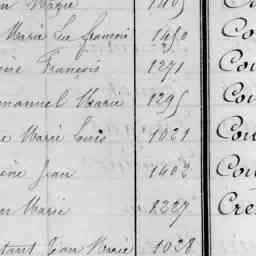 n Marie 1405 Cr
Marie Luc françois 1450 Co
ène François 1271 Cou
manuel Marie 1295 Cou
e Marie Louis 1021 Cou
oine Jean 1402 Cou
n Marie 1227 Cre
stant Jean Marie 1028